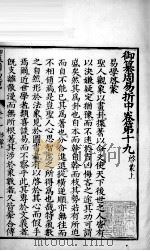 御纂周易折中卷第十九 啓蒙上
易學啓蒙
聖人觀象以畫卦揲蓍以命爻使天下後世之人皆有
以決嫌疑定猶豫而不迷於吉凶悔吝之塗其功可謂
盛矣然其為卦也自本而幹自幹而枝其勢若有所迫
而自不能已其為蓍也分合進退從橫逆順亦無往而
不相值焉是豈聖人心思智慮之所得為也哉特氣數
之自然形於法象見於圖書者有以啓於其心而假手
焉爾近世學者類喜談易而不察乎此其專於文義者
既支離散漫而無所根著其涉於象數者又皆牽合傅